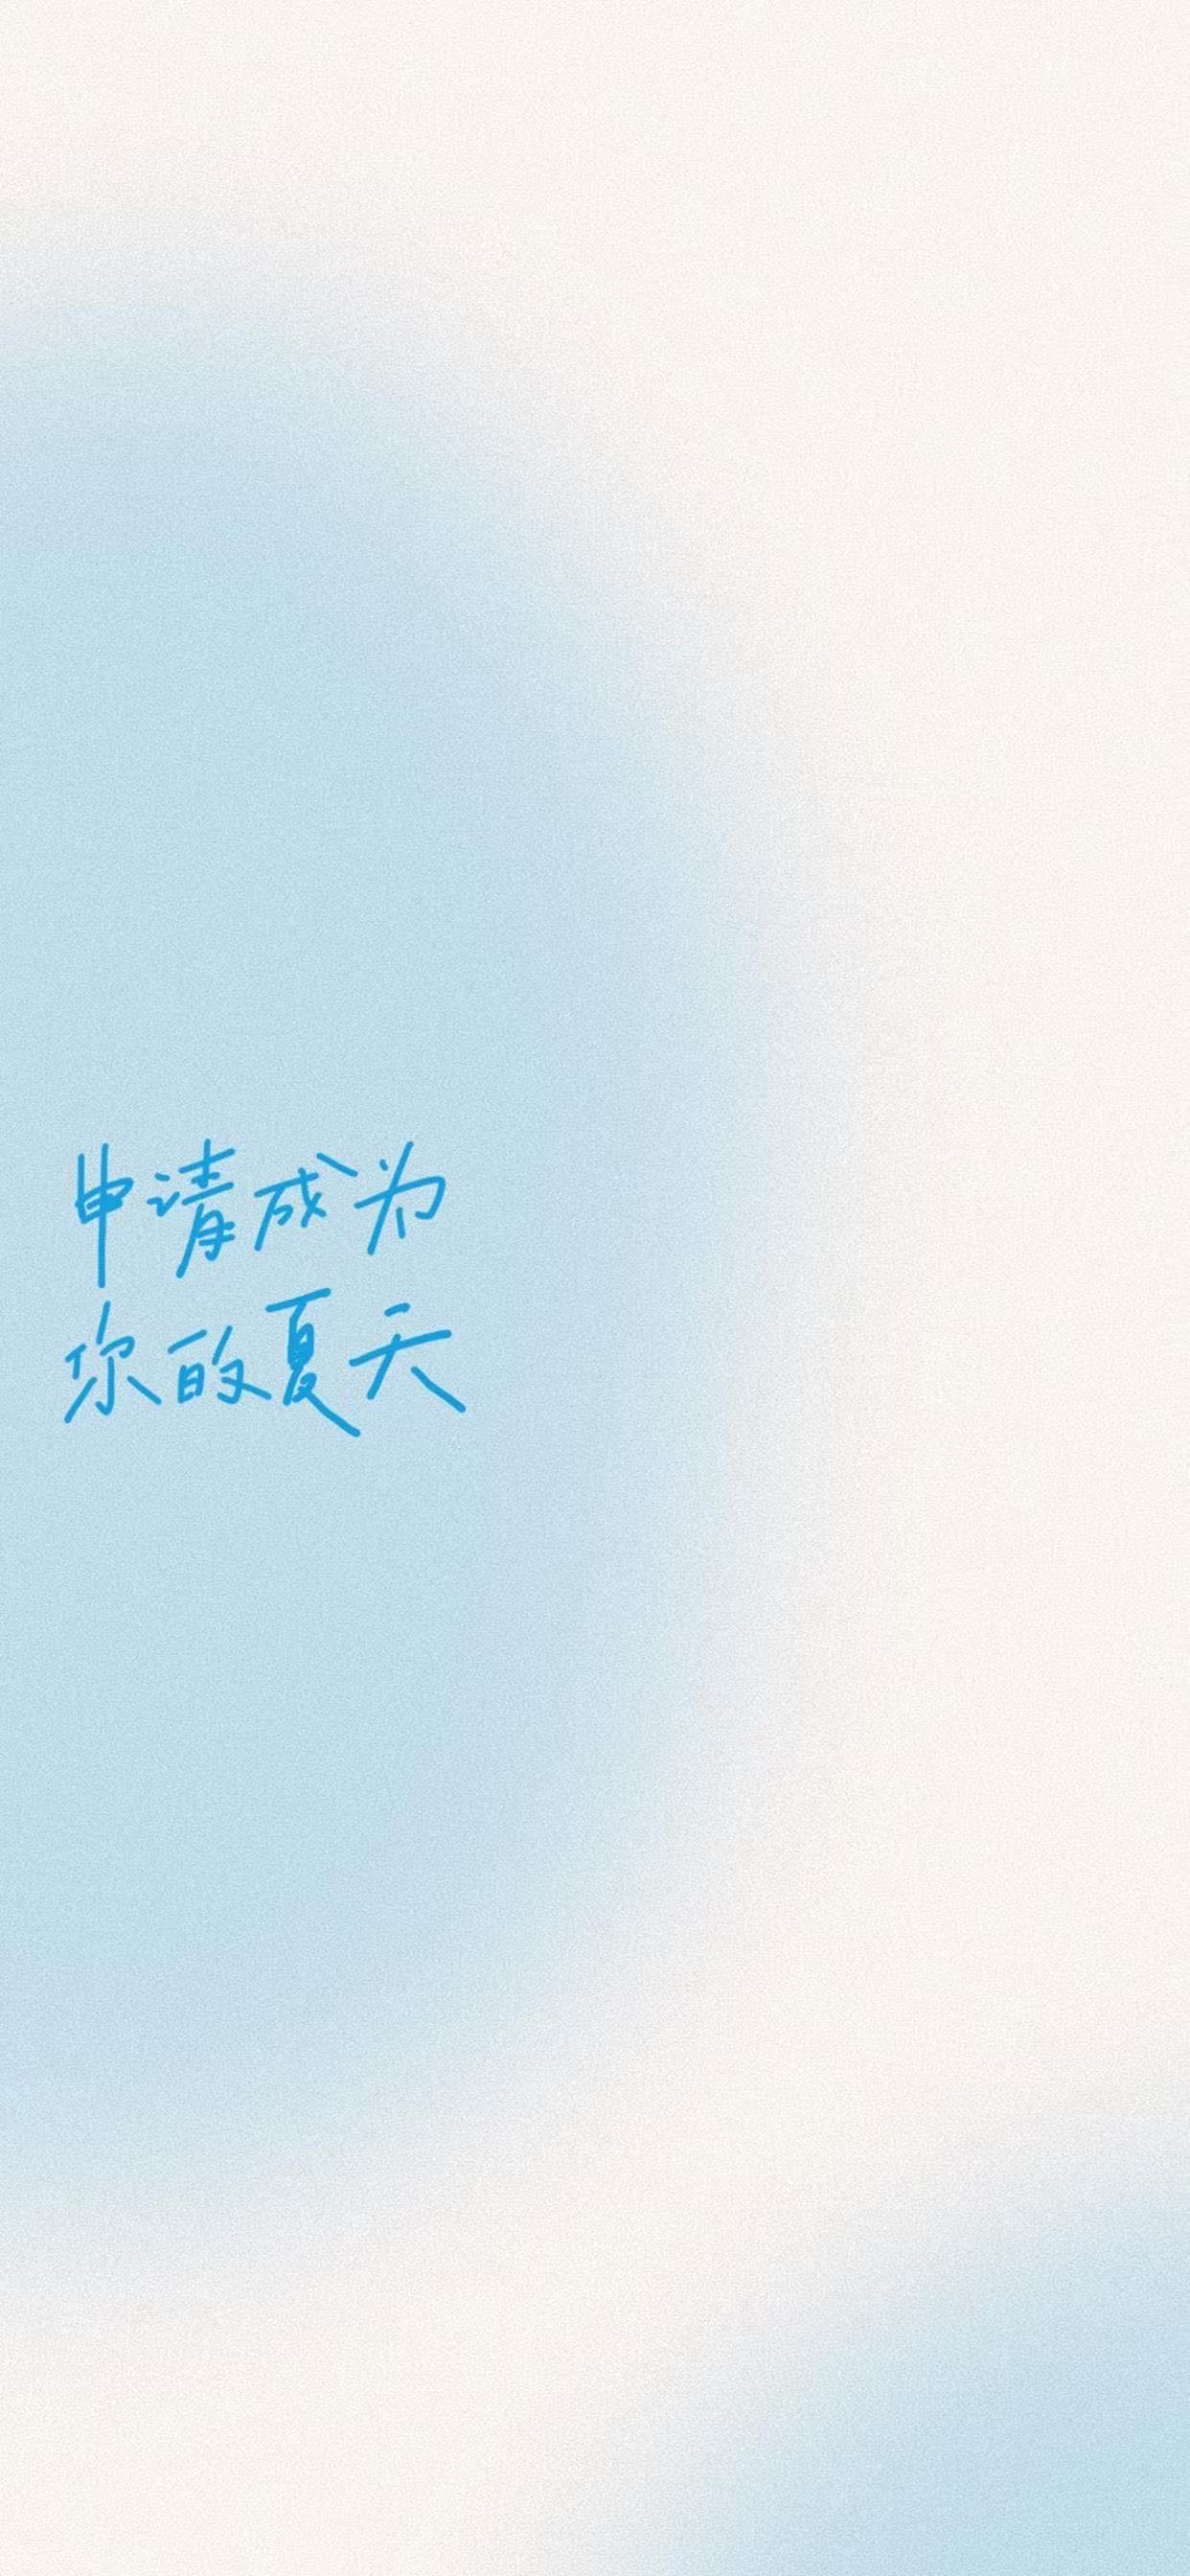 申请成为
你的夏天